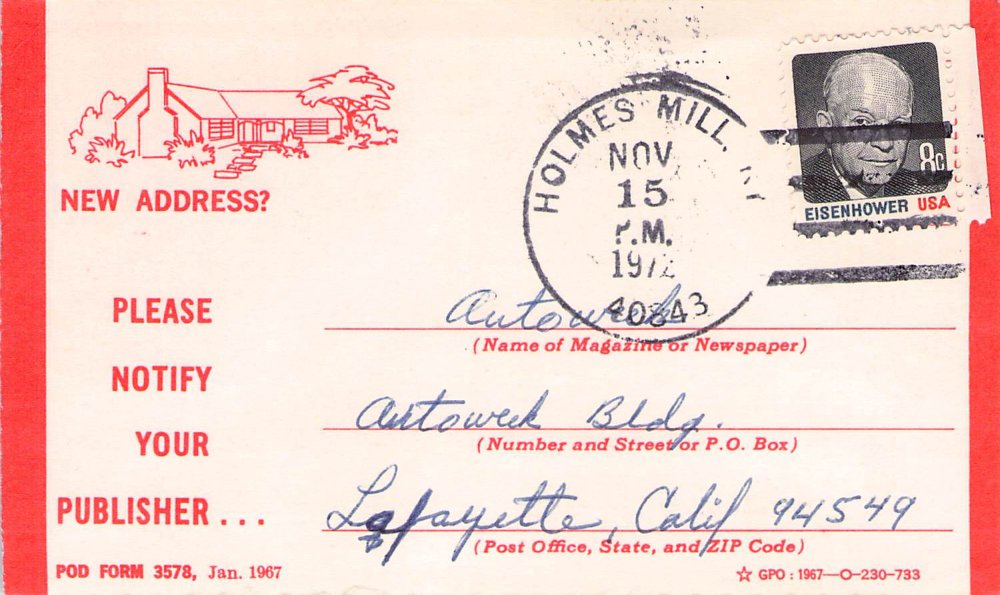 HOLMES MILL, KY
NOV
15
P.M.
1972
40843
8c
EISENHOWER USA
NEW ADDRESS?
PLEASE
NOTIFY
YOUR
PUBLISHER . . .
Autoweek
(Name of Magazine or Newspaper)
Autoweek Bldg.
(Number and Street or P.O. Box)
Lafayette, Calif 94549
(Post Office, State, and ZIP Code)
POD FORM 3578, Jan. 1967
☆ GPO : 1967—O-230-733